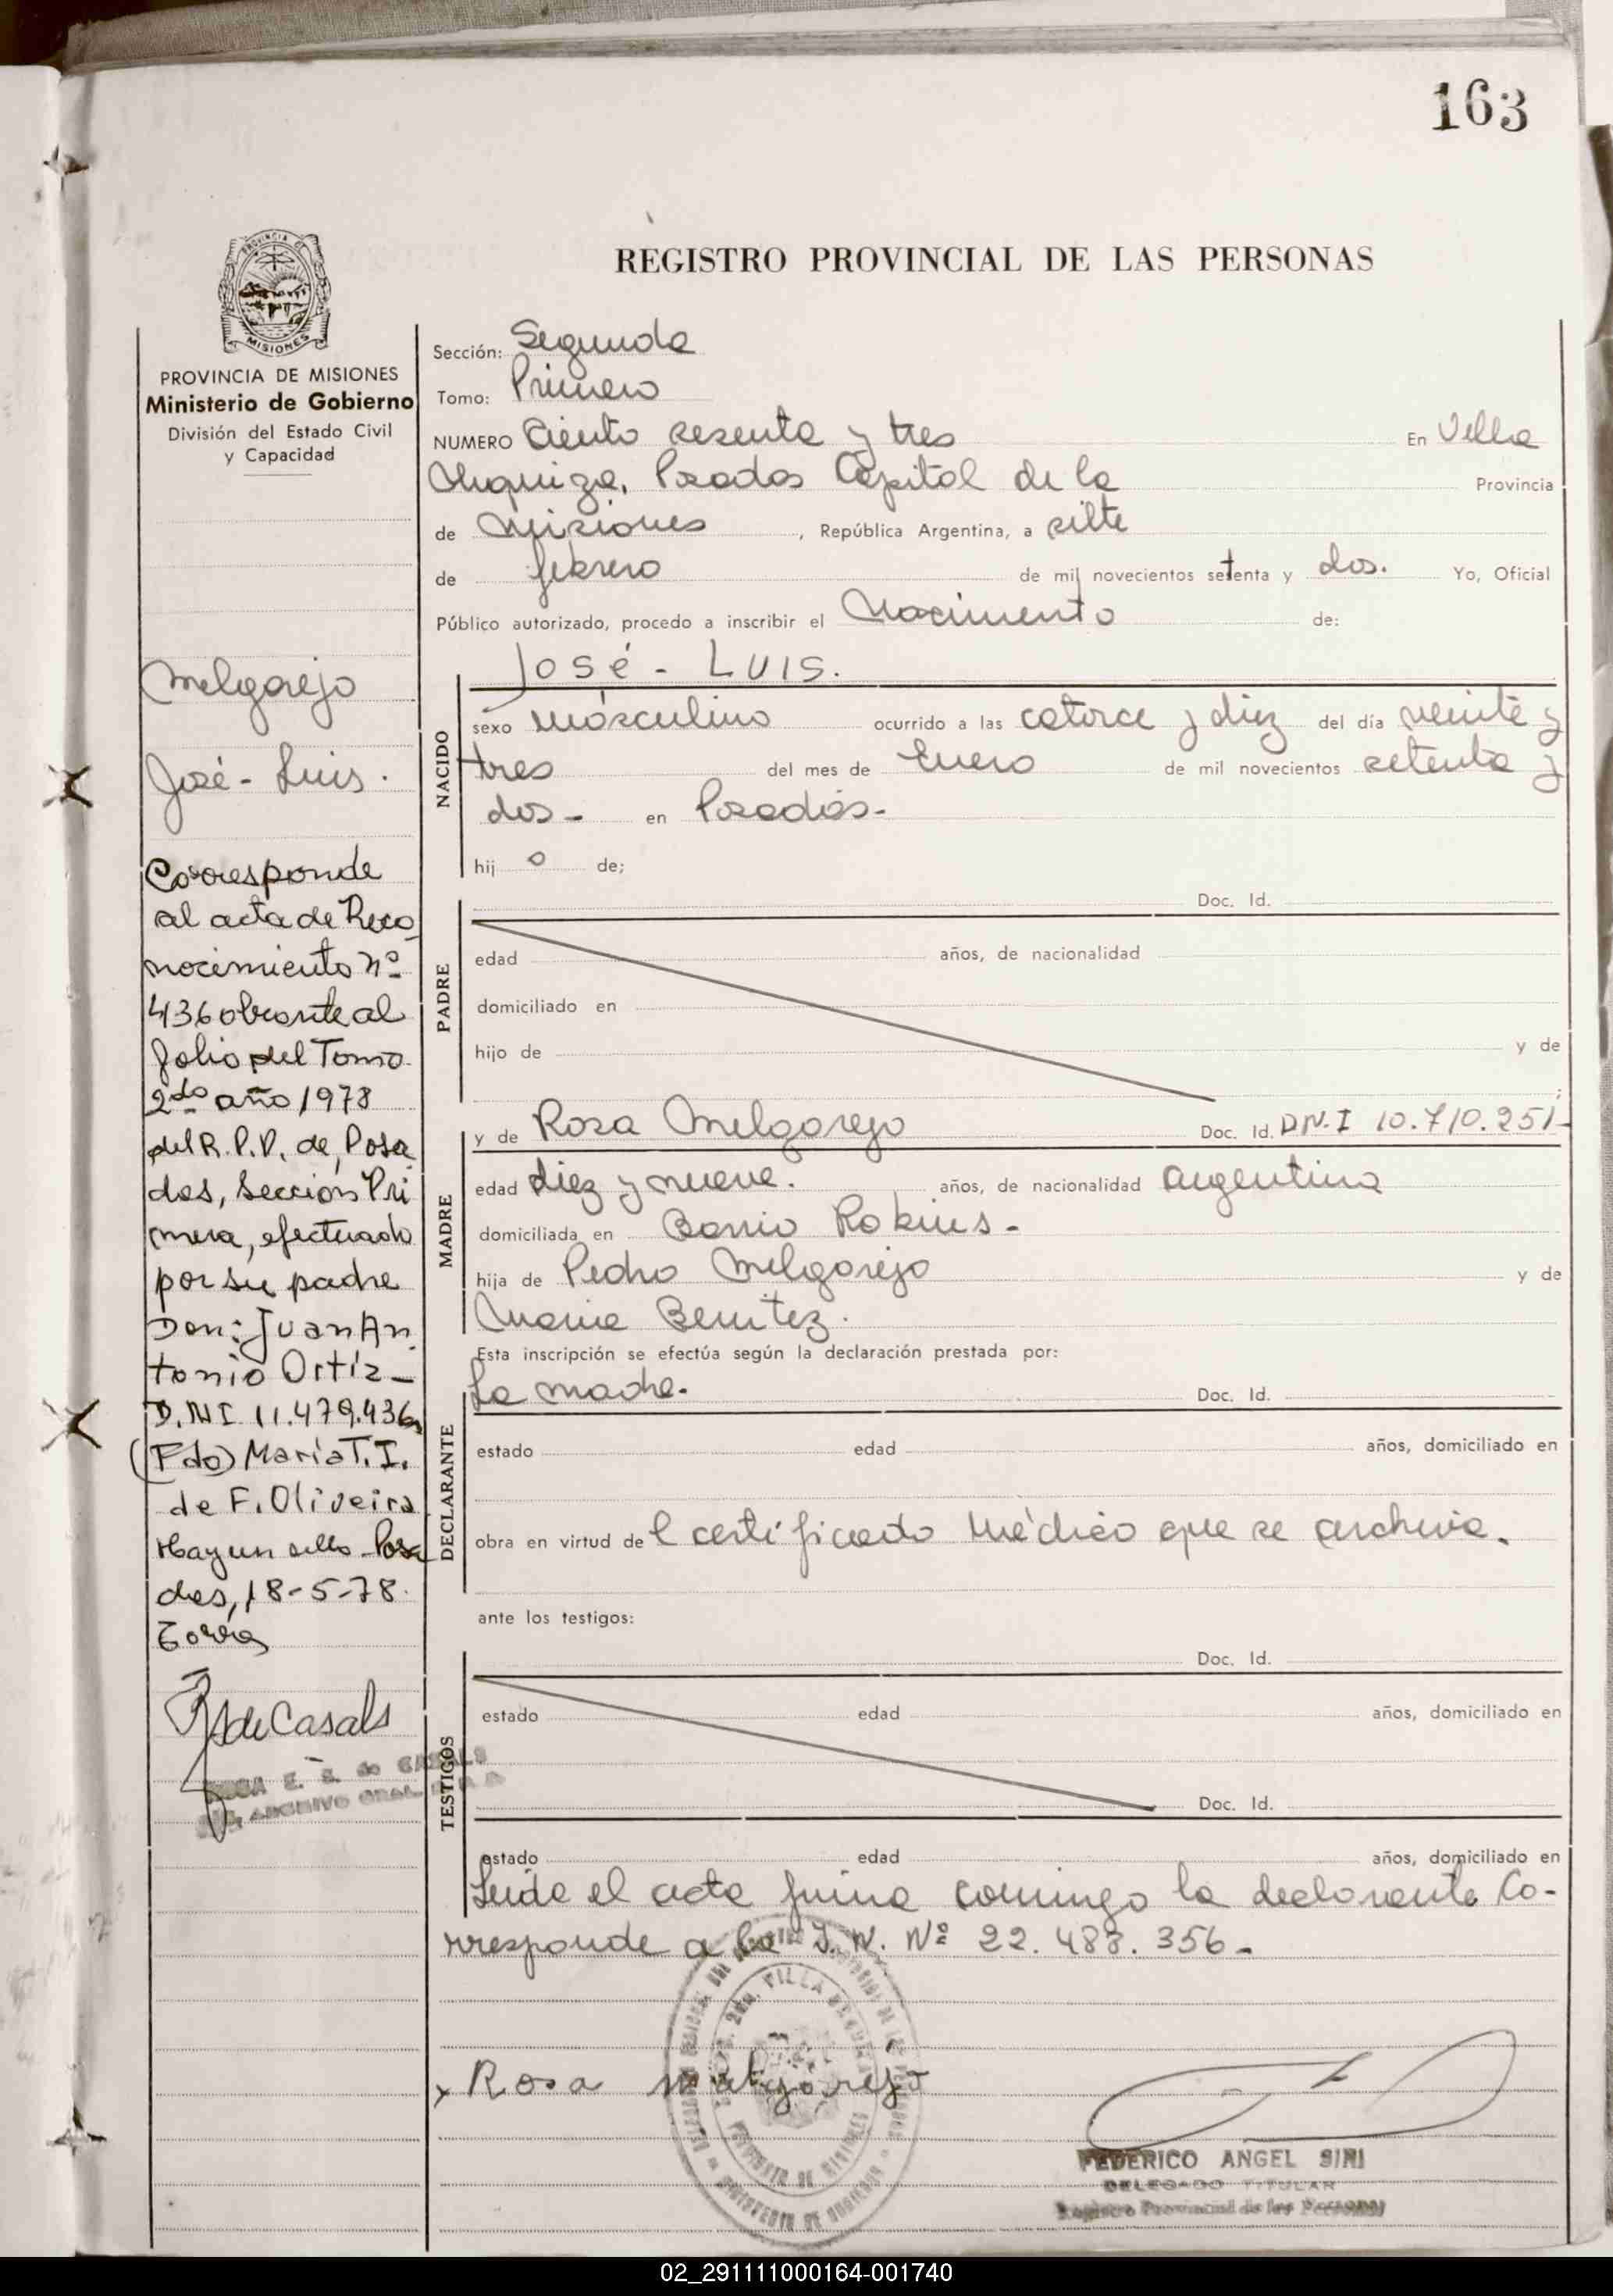 163
REGISTRO PROVINCIAL DE LAS PERSONAS
PROVINCIA DE
MISIONES
PROVINCIA DE MISIONES
Ministerio de Gobierno
División del Estado Civil
y Capacidad
Melgarejo
José - Luis.
Corresponde
al acta de Reco
nocimiento nº
436 obrante al
folio del Tomo
2do año 1978
del R.P.P. de Posa
das, Sección Pri
mera, efectuado
por su padre
Don: Juan An
tonio Ortíz-
D.N.I 11.479.436
(Fdo) María T. I.
de F. Oliveira
Hay un sello Posa
das, 18-5-78.
de Casals
E. S. de CASALS
ARCHIVO GRAL.
Sección: Segunda
Tomo: Primero
NUMERO Ciento sesenta y tres En Villa
Urquiza, Posadas Capital de la Provincia
de Misiones, República Argentina, a siete
de febrero de mil novecientos setenta y dos. Yo, Oficial
Público autorizado, procedo a inscribir el Nacimiento de:
José - LUIS.
NACIDO
sexo másculino ocurrido a las catorce y diez del día veinte y
tres del mes de Enero de mil novecientos setenta y
dos - en Posadas-
hij o de;
PADRE
Doc. Id.
edad años, de nacionalidad
domiciliado en
hijo de y de
;
MADRE
y de Rosa Melgarejo Doc. Id. DN.I 10.710.251-
edad diez y nueve. años, de nacionalidad argentina
domiciliada en Barrio Rokius-
hija de Pedro Melgarejo y de
Maria Benitez.
Esta inscripción se efectúa según la declaración prestada por:
DECLARANTE
La madre. Doc. Id.
estado edad años, domiciliado en
obra en virtud de l certificado médico que se archiva.
ante los testigos:
TESTIGOS
Doc. Id.
estado edad años, domiciliado en
Doc. Id.
estado edad años, domiciliado en
Leida el acta firma conmigo la declarante Co-
rresponde a la I. N. Nº 22.488.356-
VILLA URQUIZA
PROVINCIA DE MISIONES
MINISTERIO DE GOBIERNO
x Rosa melgarejo
FEDERICO ANGEL SIRI
DELEGADO TITULAR
Registro Provincial de las Personas
02_291111000164-001740